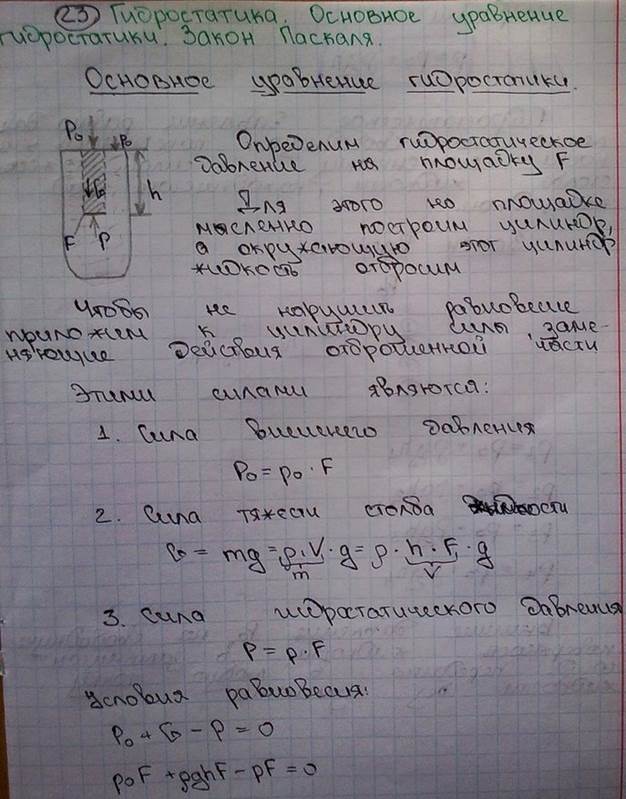 23 Гидростатика. Основное уравнение
гидростатики. Закон Паскаля.
Основное уравнение гидростатики.
P₀ p₀
G h
F P
Определим гидростатическое
давление на площадку F
Для этого на площадке
мысленно построим цилиндр,
а окружающую этот цилиндр
жидкость отбросим
Чтобы не нарушить равновесие
приложем к цилиндру силы, заме-
няющие действия отброшенной части
Этими силами являются:
1. Сила внешнего давления
P₀ = p₀ · F
2. Сила тяжести столба жидкости
G = mg = ρ · V · g = ρ · h · F · g
m V
3. Сила гидростатического давления
P = p · F
Условия равновесия:
P₀ + G - P = 0
p₀F + ρghF - pF = 0